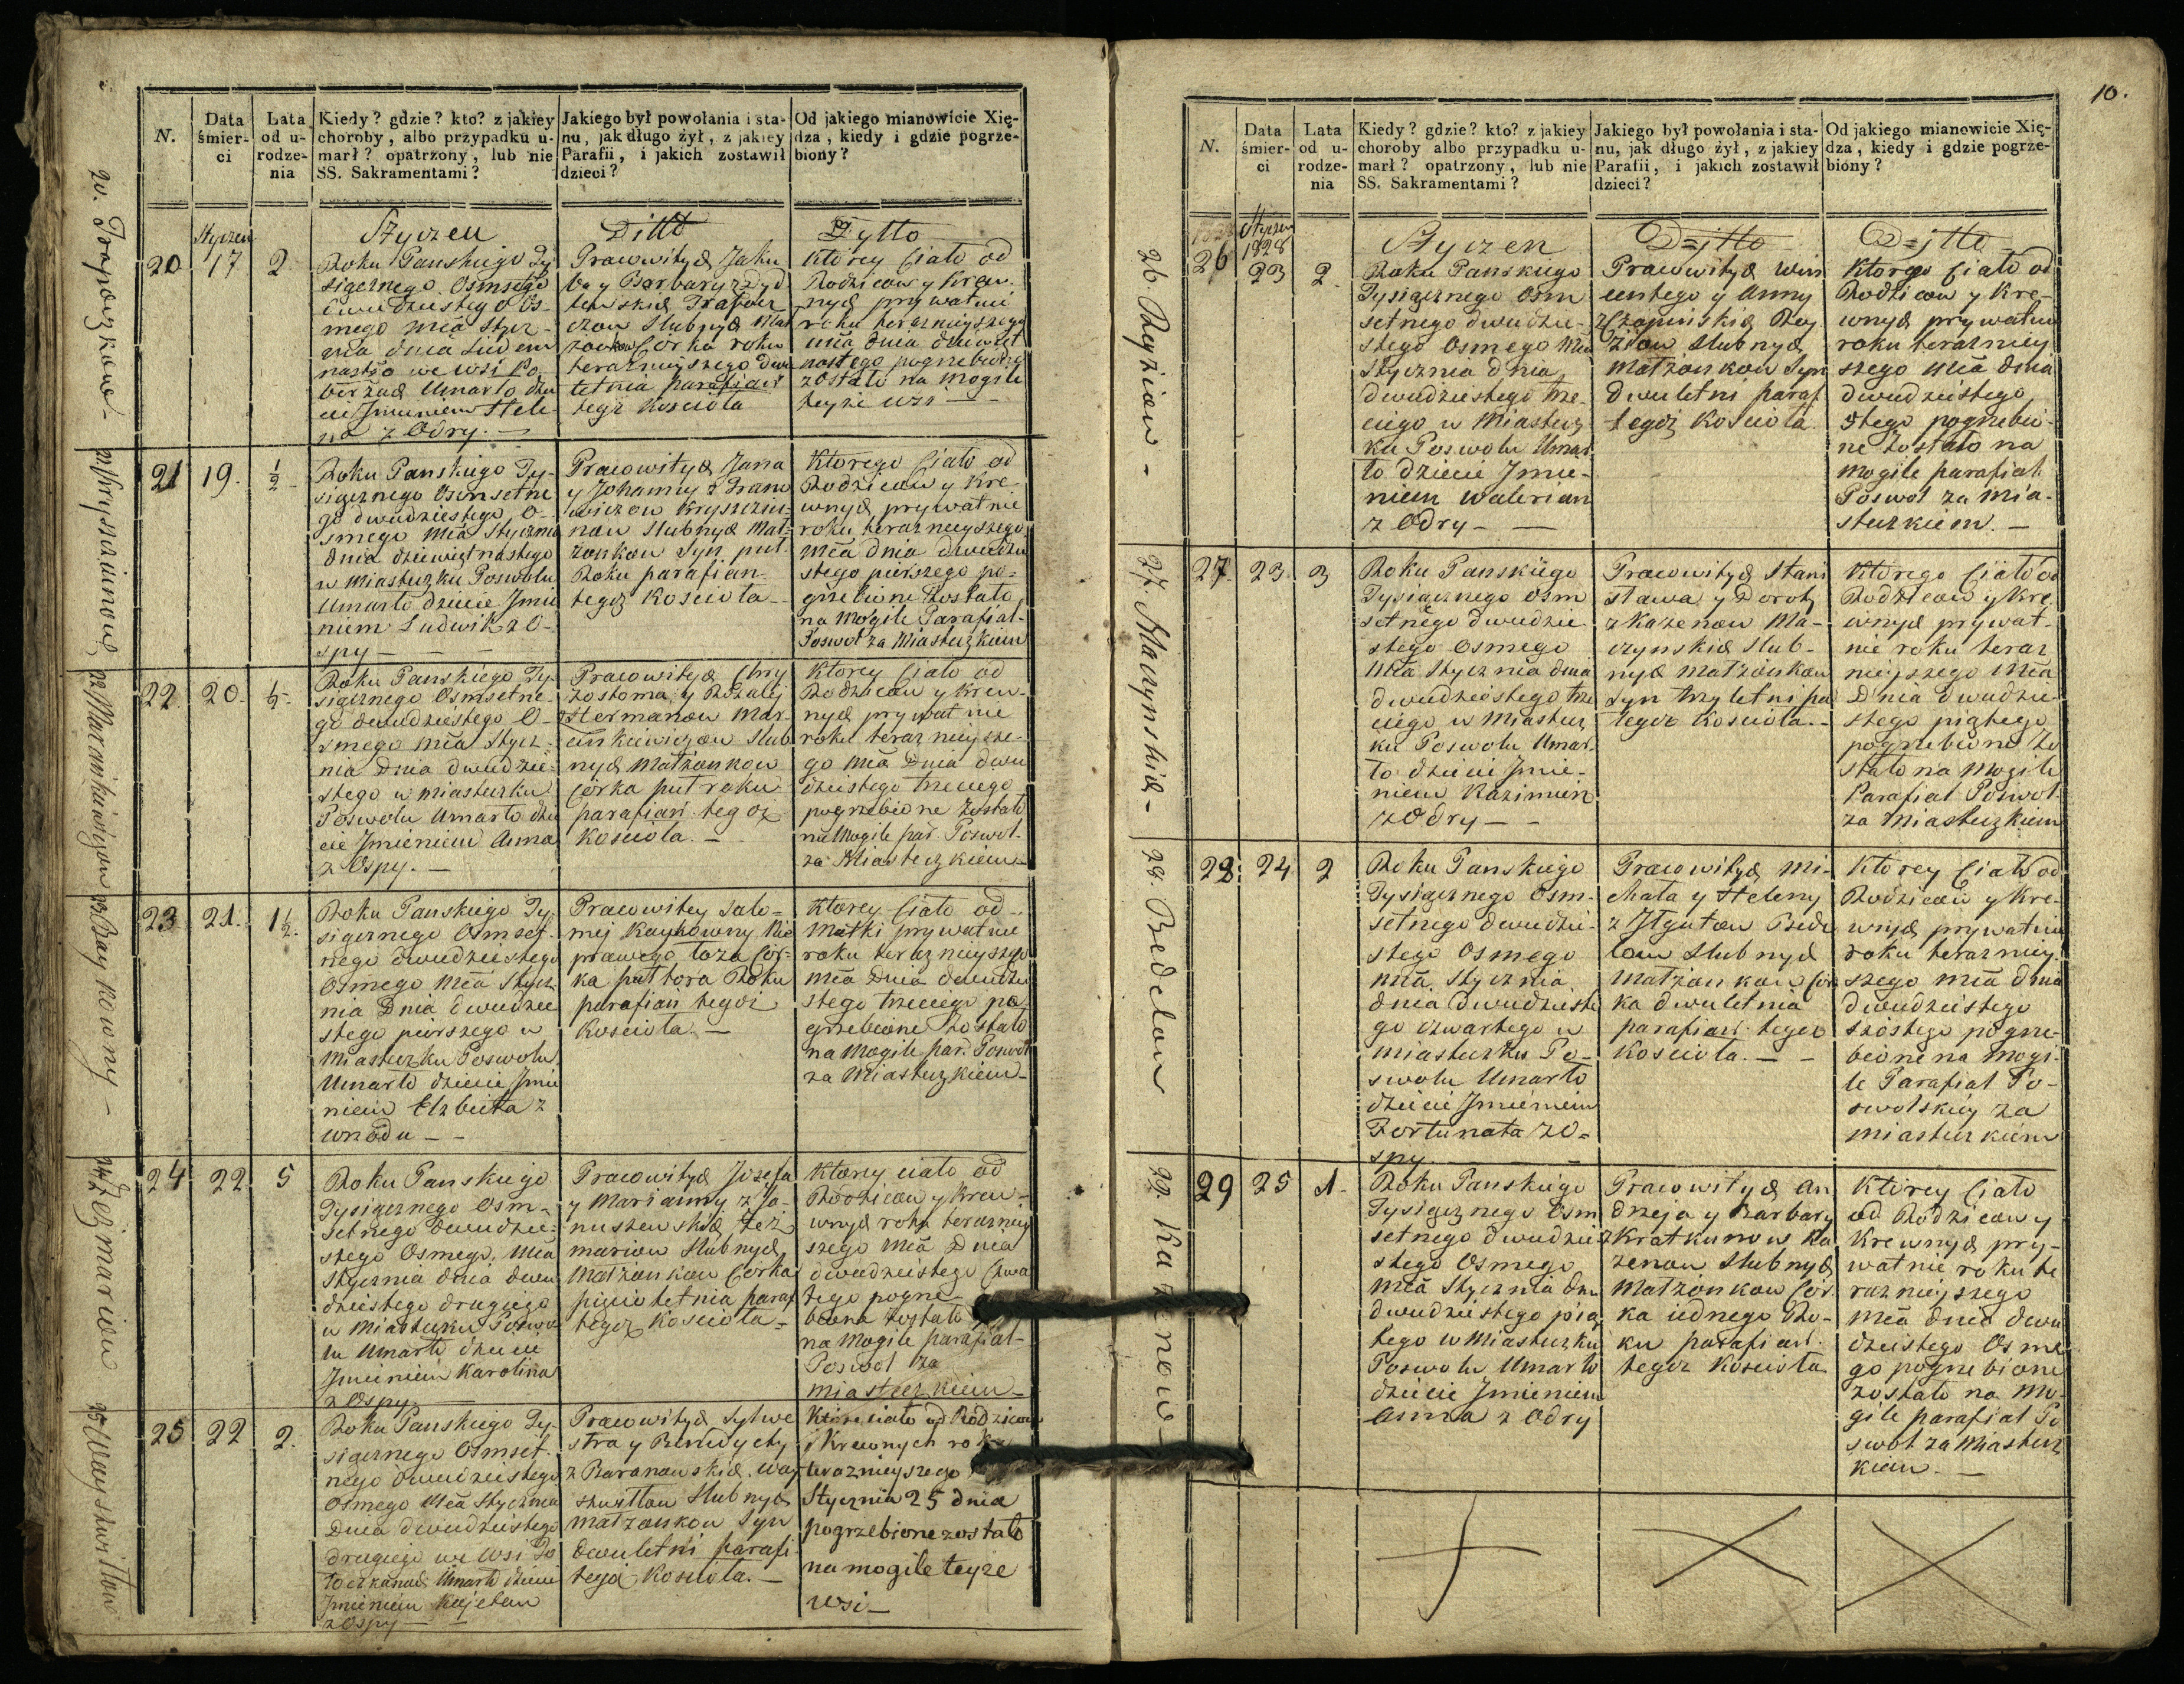 N.
Data śmier-ci
Lata od u-rodze-nia
Kiedy? gdzie? kto? z jakiey
choroby, albo przypadku u-
marł? opatrzony, lub nie
SS. Sakramentami?
Jakiego był powołania i sta-
nu, jak długo żył, z jakiey
Parafii, i jakich zostawił
dzieci?
Od jakiego mianowicie Xię-
dza, kiedy i gdzie pogrze-
biony?
Styczen
Styczen
Ditto
Dytto
20 17 2
Roku Panskiego Ty
sigcznego Osmsego
dwudziestego Os-
mego mca Stycz-
nia dnia siedem
nastego we wsi Po-
Umarło dzie
cie Jmieniem Hele
na z Odry.
Prawowityd Jaku
ba y Barbary z Dyd
lewskid Trapaec
czow Slubnyd Mał
zonkow Corka roku
terazneyszego dwu
letnia parafian
tegoz Kosciola
Ktorey Ciało od
Rodzicow y Krew-
nyd prywatnie
roku terazneyszego
mca dnia dziewiet
nastego pogrzebione
zostało na Mogile
teyze wsi
21 19. ½
Roku Panskiego Ty-
sigcznego Osmsetne
go dwudziestego O-
smego Mca Stycznia
dnia dziewiętnastego
w Miasteczku Poswolu
Umarło dziecie Jmie
niem Ludwik z O-
spy
Prawowityd Jana
y Johanny z Franc
wiczow Kryszczu-
now Slubnyd Mał-
zonkow Syn puł
Roku parafian
tegoz Kosciola
Ktorego Ciało od
Rodzicow y Kre-
wnyd prywatnie
roku terazneyszego
mca dnia dwudzie
stego pierszego po-
grzebione Zostało
na Mogile Parafial-
Poswol za Miasteczkiem
22 20. ½
Roku Panskiego Ty-
sigcznego Osmsetne-
go dwudziestego O-
smego mca Stycz-
nia Dnia dwudzie-
stego w miasteczku
Poswolu Umarło dzie
cie Jmieniem Anna
z Ospy.
Prawowityd Chry
zostoma y Rozalij
z Hermanow Mar-
cinkiewiczow Slub
nyd Małzonkow
Corka puł roku
parafian. tegoz
Kosciola.
Ktorey Ciało od
Rodzicow y Krew-
nyd prywatnie
roku terazneysze-
go mca Dnia dwu
dziestego trzeciego
pogrzebione Zostało
na Mogile par. Poswol-
za Miasteczkiem
23 21. 1½.
Roku Panskiego Ty-
sigcznego Osmset-
nego dwudziestego
Osmego Mca Stycz
nia Dnia dwudzie
stego pierszego w
Miasteczku Poswolu
Umarło dziecie Jmie
niem Elzbieta z
wrzodu
Prawowitey Salo-
mej Kaykowny Nie
prawego łoza Cor-
ka puł tora Roku
parafian tegoz
Kosciola.
Ktorey Ciało od
Matki prywatnie
roku terazneyszego
mca Dnia dwudzie
stego trzeciego po
grzebione Zostało
na Mogile par. Poswol
za Miasteczkiem
24 22 5
Roku Panskiego
Tysigcznego Osm-
setnego dwudzie-
stego Osmego. Mca
Stycznia dnia dwu
dziestego drugiego
w Miasteczku Poswo
lu Umarło dziecie
Jmieniem Karolina
z Ospy
Prawowityd Jozefa
y Marianny z Ja-
nuszewskid Zez
mariow Slubnyd
Małzonkow Corka
piecioletnia paraf
tegoz Kosciola
Ktorey ciało od
Rodzicow y Krew-
wnyd roku terazniey
szego Mca Dnia
dwudziestego Czwar
tego pogrze-
biona Zostało
na Mogile parafial-
Poswol za
miasteczkiem
25 22 2.
Roku Panskiego Ty-
sigcznego Osmset-
nego dwudziestego
Osmego Mca Stycznia
Dnia dwudziestego
drugiego we Wsi
Umarło dziecie
Jmieniem Kajetan
z Ospy
Prawowityd Sylwe
stra y Benedykty
z Baranowskid Way
Slubnyd
Małzonkow Syn
dwuletni parafi
tegoz Kosciola.
Ktore ciało od Rodzicow
i Krewnych roku
terazneyszego
Stycznia 25 dnia
pogrzebione zostało
na mogile teyze
wsi
20.
21.
22. Marcinkiewiczow
23. Kaykowny
24. Zezmariow
25.
10.
N.
Data śmier-ci
Lata od u-rodze-nia
Kiedy? gdzie? kto? z jakiey
choroby albo przypadku u-
marł? opatrzony, lub nie
SS. Sakramentami?
Jakiego był powołania i sta-
nu, jak długo żył, z jakiey
Parafii, i jakich zostawił
dzieci?
Od jakiego mianowicie Xię-
dza, kiedy i gdzie pogrze-
biony?
Styczen
1828
Styczen
D=itto
D=itto
26 23 2.
Roku Panskiego
Tysigcznego Osm
setnego dwudzie-
stego Osmego Mca
Stycznia dnia
dwudziestego trze-
ciego w Miastecz
ku Poswolu Umar
ło dziecie Jmie-
niem Walerian
z Odry
Prawowityd Win
centego y Anny
z Czapinskid Rey
ziow Slubnyd
Małzonkow Syn
dwuletni paraf
tegoz Kosciola
Ktorego Ciało od
Rodzicow y Kre-
wnyd prywatnie
roku terazniey
szego Mca dnia
dwudziestego
Stego pogrzebio-
ne Zostało na
Mogile parafial.
Poswol za Mia-
steczkiem.
27. 23. 3
Roku Panskiego
Tysigcznego Osm
setnego dwudzie-
stego Osmego
Mca Stycznia dnia
dwudziestego trze
ciego w Miastecz
ku Poswolu Umar
ło dziecie Jmie-
niem Kazimierz
z Odry
Prawowityd Stani
sława y Doroty
z Kazenow Ma-
czynskid Slub-
nyd Małzonkow
Syn trzyletni pa
tegoz Kosciola.
Ktorego Ciało od
Rodzicow y Kre
wnyd prywat-
nie roku teraz
nieyszego Mca
Dnia dwudzie-
stego piątego
pogrzebione Zo
stało na Mogile
Parafial Poswol
za Miasteczkiem
28. 24 2
Roku Panskiego
Tysigcznego Osm-
setnego dwudzie-
stego Osmego
Mca. Stycznia
dnia dwudzieste
go czwartego w
miasteczku Po-
swolu Umarło
dziecie Jmieniem
Fortunata z O-
spy
Prawowityd Mi-
chała y Heleny
z Jtgutow Bede
low Slubnyd
Małzonkow Cor
ka dwuletnia
parafian. tegoz
Kosciola.
Ktorey Ciało od
Rodzicow y Kre-
wnyd prywatnie
roku terazniey-
szego mca dnia
dwudziestego
szostego pogrze-
bione na Mogi-
le Parafial Po-
swolskiey za
miasteczkiem
29 25 1.
Roku Panskiego
Tysigcznego Osm
setnego dwudzie
stego Osmego
Mca Stycznia dnia
dwudziestego pią
tego w Miasteczku
Poswolu Umarło
dziecie Jmieniem
Anna z Odry
Prawowityd An
drzeja y Barbary
z Kratkunow Ka
zenow Slubnyd
Małzonkow Cor-
ka iednego Ro-
ku parafian.
tegoz Kosciola
Ktorey Ciało
od Rodzicow y
Krewnyd pry-
watnie roku te
raznieyszego
mca dnia dwu
dziestego Osme
go pogrzebione
zostało na Mo-
gile parafial Po
swol za Miastecz
kiem.
26. Reyziow
27. Maczynskid
28. Bedelow
29. Kazenow